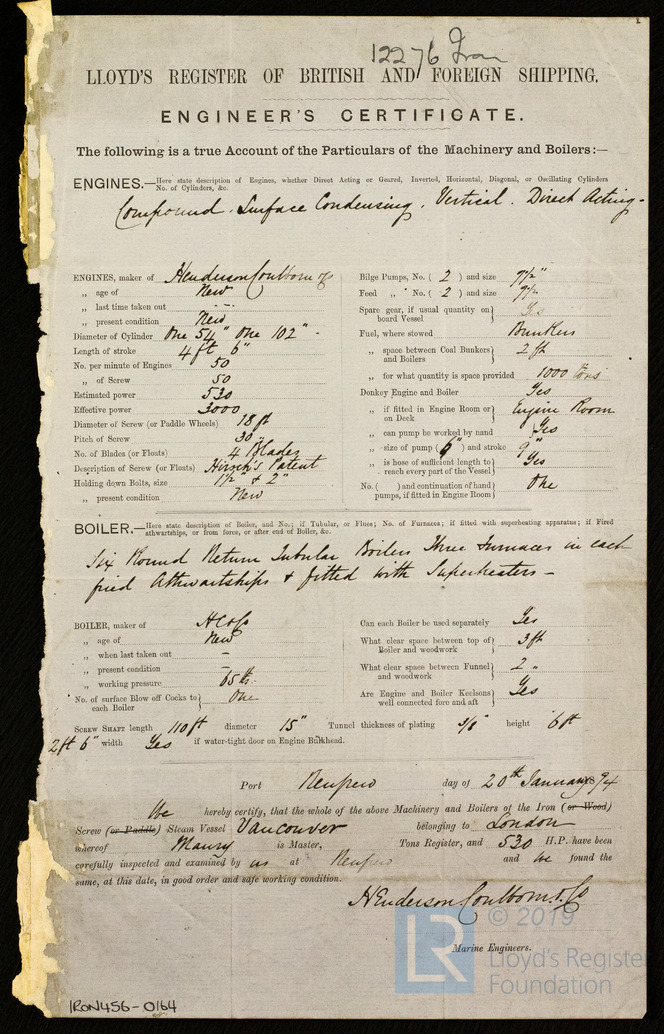 12276 Iron
LLOYD'S REGISTER OF BRITISH AND FOREIGN SHIPPING.
ENGINEER'S CERTIFICATE.
The following is a true Account of the Particulars of the Machinery and Boilers:—
ENGINES.—Here state description of Engines, whether Direct Acting or Geared, Inverted, Horizontal, Diagonal, or Oscillating Cylinders
No. of Cylinders, &c.
Compound. Surface Condensing. Vertical. Direct Acting-
ENGINES, maker of Henderson Coulborn & Co
„ age of New
„ last time taken out
„ present condition New
Diameter of Cylinder One 54" One 102"
Length of stroke 4 ft 6"
No. per minute of Engines 50
„ of Screw 50
Estimated power 530
Effective power 3000
Diameter of Screw (or Paddle Wheels) 18 ft
Pitch of Screw 30 "
No. of Blades (or Floats) 4 Blades
Description of Screw (or Floats) Hirsch's Patent
Holding down Bolts, size 1½ & 2"
„ present condition New
Bilge Pumps, No. ( 2 ) and size 7½"
Feed „ No. ( 2 ) and size 7½
Spare gear, if usual quantity on board Vessel Yes
Fuel, where stowed Bunkers
„ space between Coal Bunkers and Boilers 2 ft
„ for what quantity is space provided 1000 tons
Donkey Engine and Boiler Yes
„ if fitted in Engine Room or on Deck Engine Room
„ can pump be worked by hand Yes
„ size of pump ( 6" ) and stroke 9"
„ is hose of sufficient length to reach every part of the Vessel Yes
No. ( ) and continuation of hand pumps, if fitted in Engine Room One
BOILER.—Here state description of Boiler, and No.; if Tubular, or Flues; No. of Furnaces; if fitted with superheating apparatus; if Fired
athwartships, or from force, or after end of Boiler, &c.
Six Round Return Tubular Boilers Three Furnaces in each
fired Athwartships & fitted with Superheaters -
BOILER, maker of H C & Co
„ age of New
„ when last taken out -
„ present condition -
„ working pressure 65 lbs
No. of surface Blow off Cocks to each Boiler One
Can each Boiler be used separately Yes
What clear space between top of Boiler and woodwork 3 ft
What clear space between Funnel and woodwork 2 "
Are Engine and Boiler Keelsons well connected fore and aft Yes
SCREW SHAFT length 110 ft diameter 15" Tunnel thickness of plating 3/8" height 6 ft
2 ft 6" width Yes if water-tight door on Engine Bulkhead.
Port Renfrew day of 20th January 1874
We hereby certify, that the whole of the above Machinery and Boilers of the Iron (or Wood)
Screw (or Paddle) Steam Vessel Vancouver belonging to London
whereof Maury is Master, Tons Register, and 530 H.P. have been
carefully inspected and examined by us at Renfrew and we found the
same, at this date, in good order and safe working condition.
Henderson Coulborn & Co
Marine Engineers.
LR © 2019
Lloyd's Register
Foundation
IRON456-0164